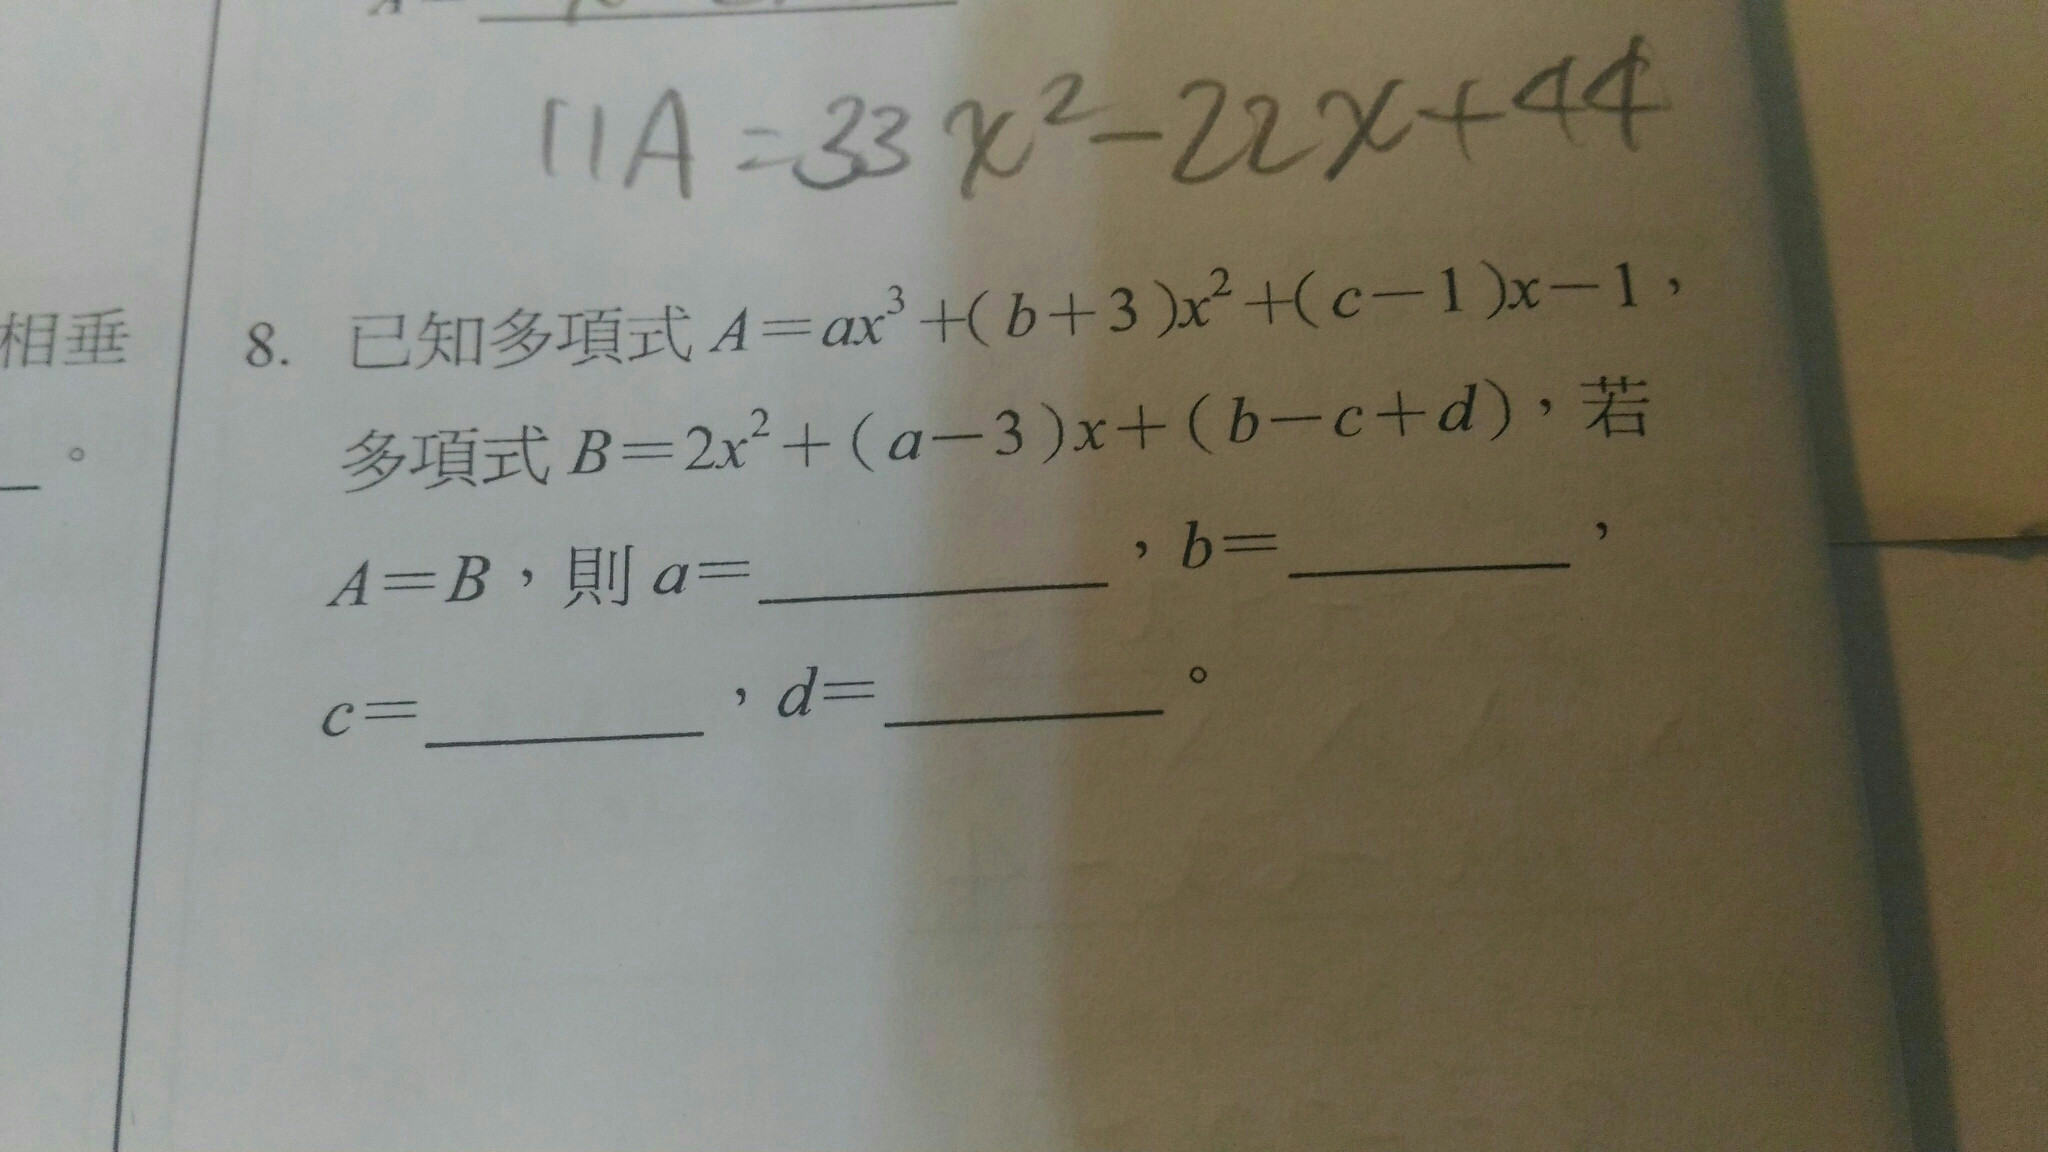 11A=33x²-22x+44
相垂
。
8. 已知多項式 A=ax³+(b+3)x²+(c-1)x-1，
多項式 B=2x²+(a-3)x+(b-c+d)，若
A=B，則 a=__________，b=________，
c=________，d=________。